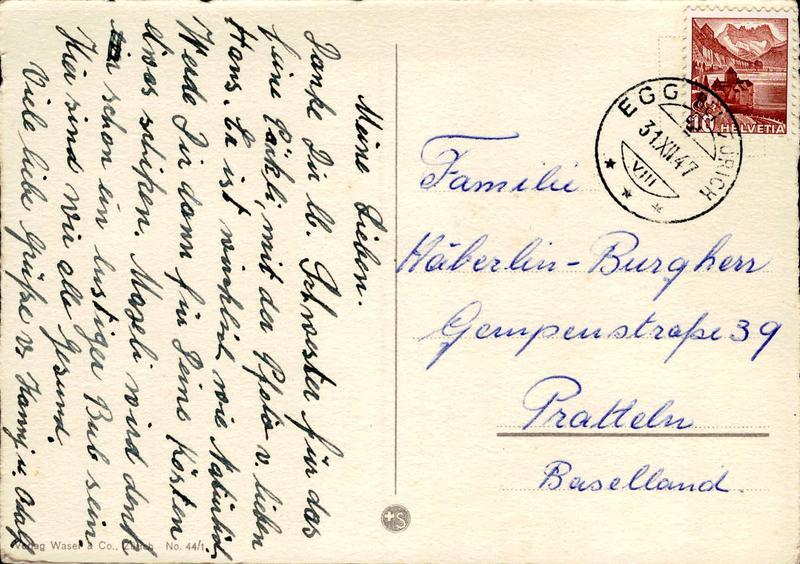 Meine Lieben.
Danke Dir lb. Schwester für das
feine Päckli, mit der Photo v. lieben
Hans. Er ist wirklich wie Natürlich.
Werde Dir dann für Deine Kosten
etwas schicken. Maxeli wird denk
schon ein lustiger Bub sein.
Hier sind wir alle Gesund.
Viele liebe Grüße v. Hanny u. Adolf
EGG BEI ZÜRICH
31.XII.47
VIII
10
HELVETIA
Familie
Häberlin-Burgherr
Gempenstraße 39
Pratteln
Baselland.
S
Verlag Waser & Co., Zürich No. 44/1